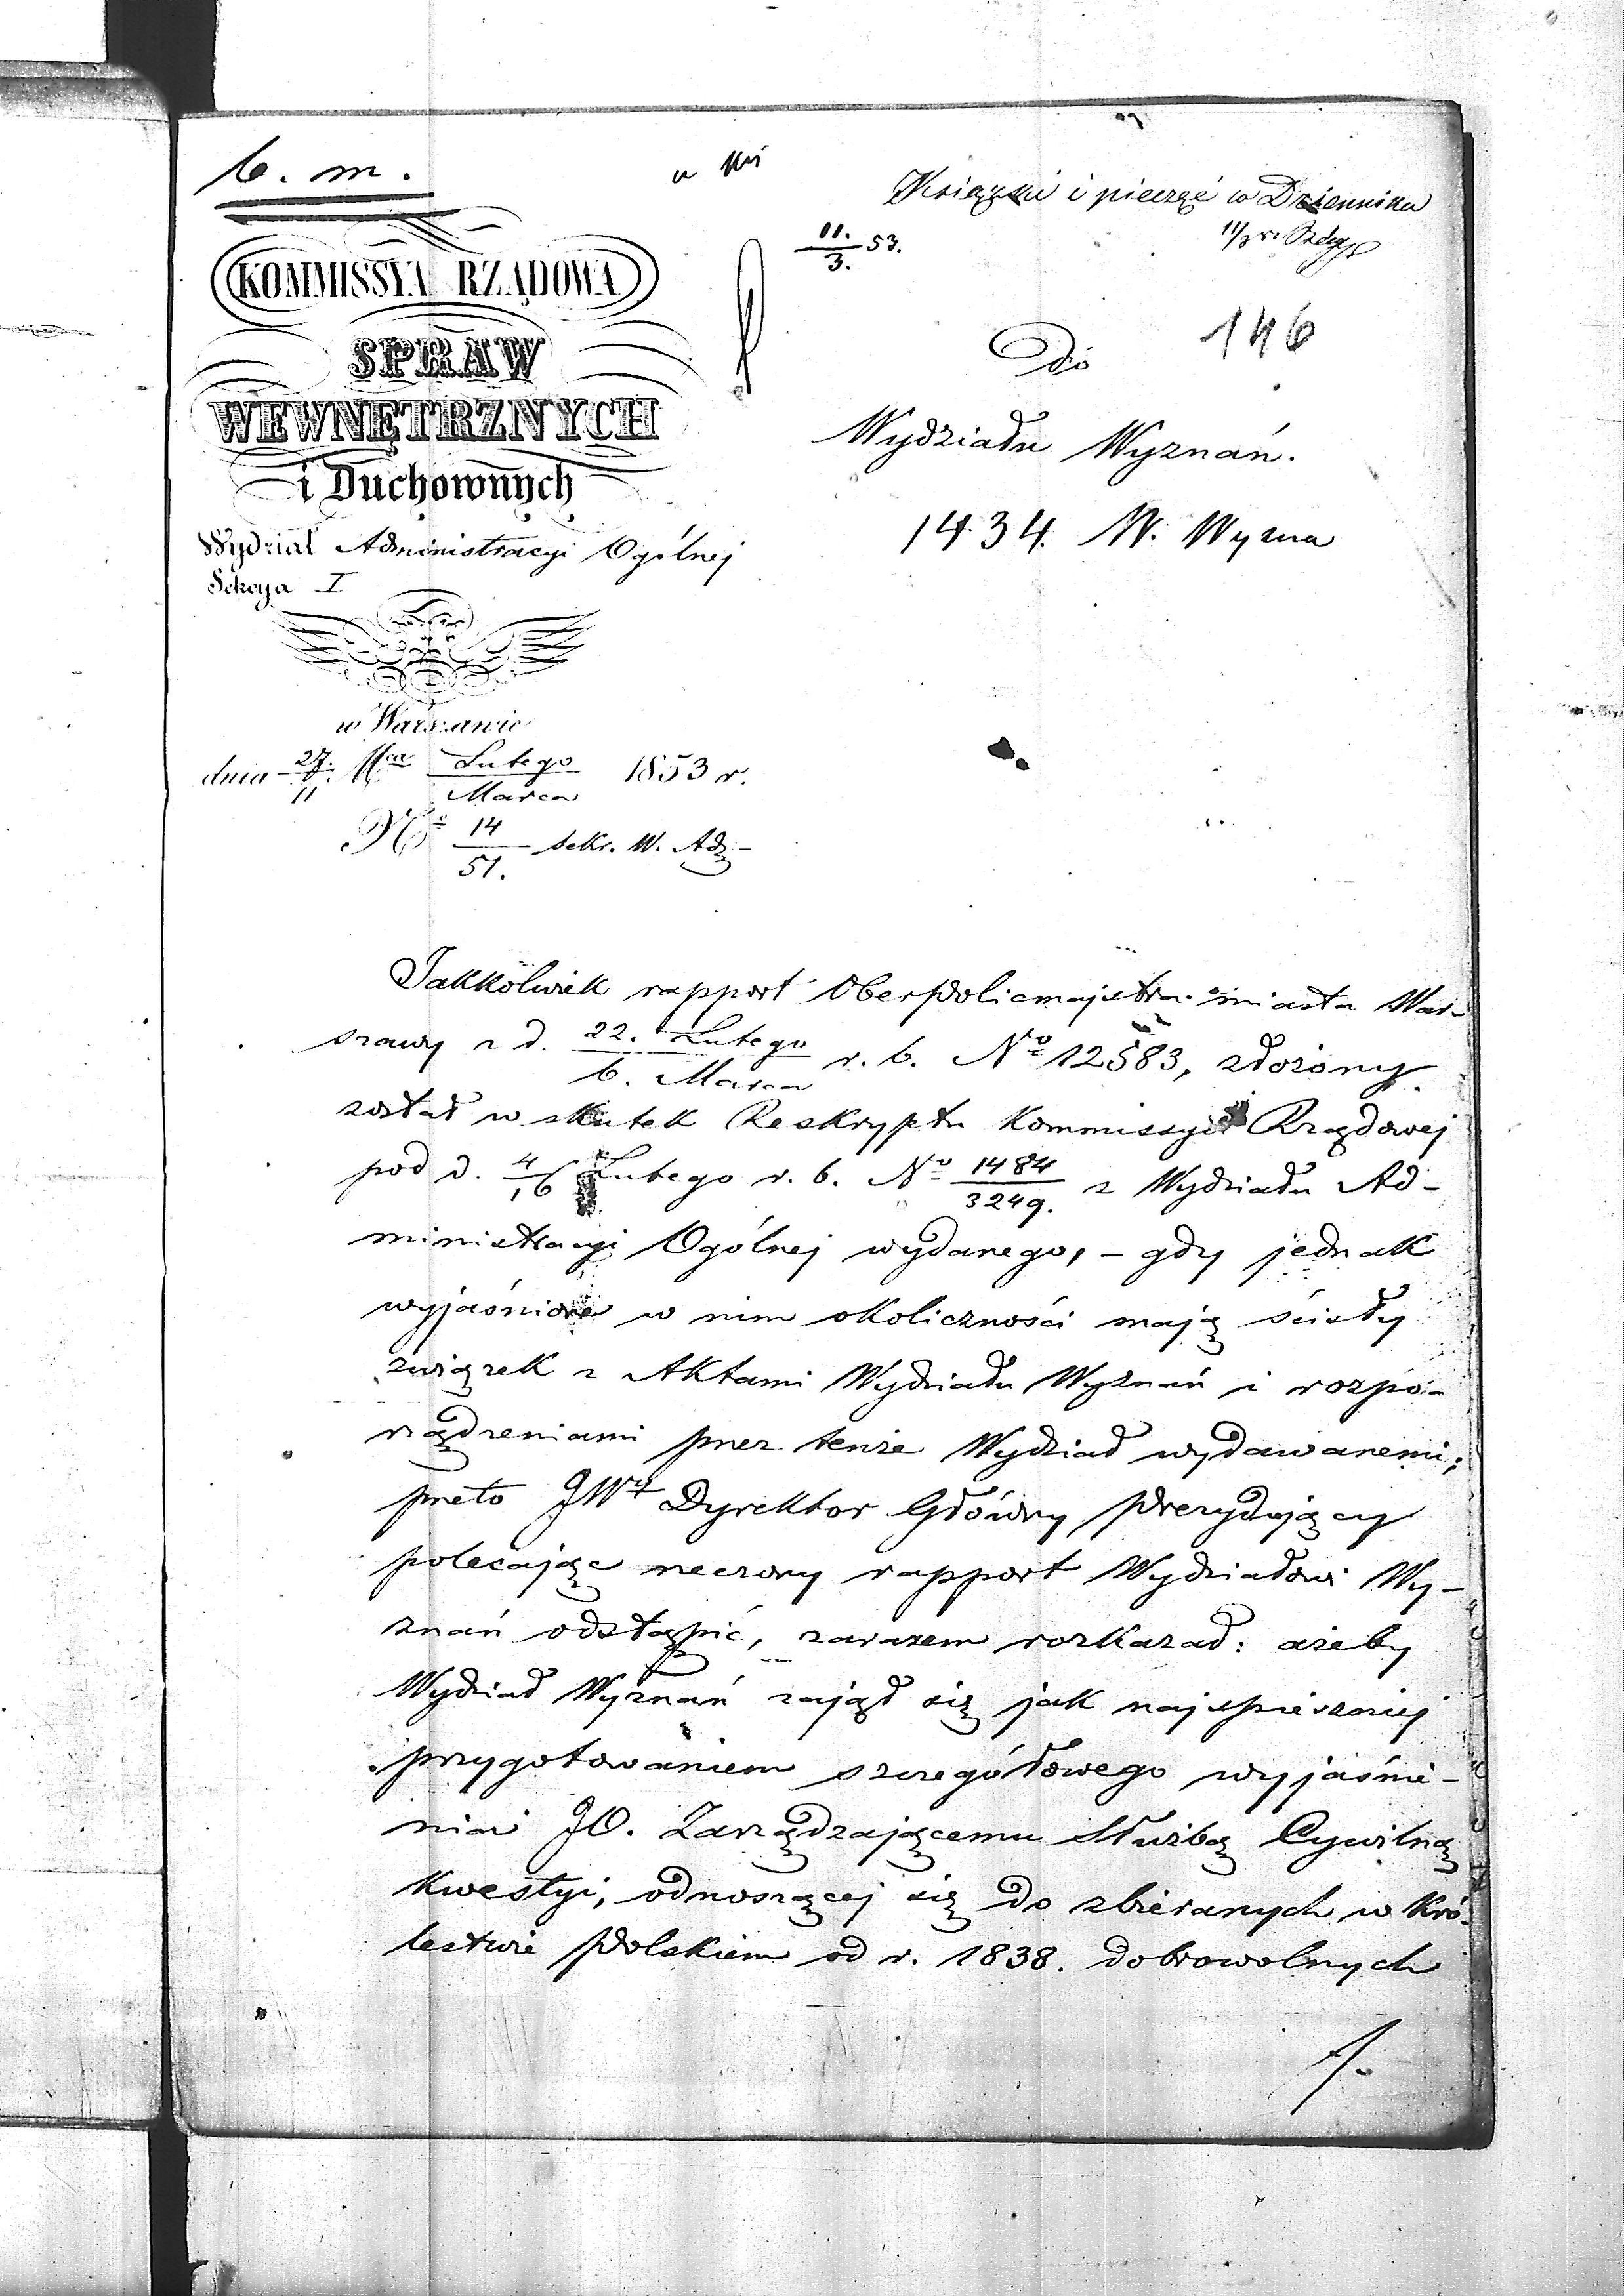 b. m.
Książki i pieczęć w Dzienniku
11./3. 53.
11/3
146
KOMMISSYA RZĄDOWA
SPRAW
WEWNĘTRZNYCH
i Duchownych
Wydział Administracyi Ogólnej
Sekcya I
w Warszawie
dnia 27./11 Lutego/Marca 1853 r.
No 14/51. sekr. W. Ad
Do
Wydziału Wyznań.
1434. W. Wyzna
Jakkolwiek rapport Oberpolicmajstra miasta War-
szawy z d. 22. Lutego/6. Marca r. b. No 12583, złożony
został w skutek Reskryptu Kommissyi Rządowej
pod d. 4/16 Lutego r. b. No 1484/3249. z Wydziału Ad-
ministracyi Ogólnej wydanego, - gdy jednak
wyjaśnione w nim okoliczności mają ścisły
związek z Aktami Wydziału Wyznań i rozpo-
rządzeniami przez tenże Wydział wydawanemi;
przeto JWy Dyrektor Główny Prezydujący
polecając rzeczony rapport Wydziałowi Wy-
znań odstąpić, zarazem rozkazał: ażeby
Wydział Wyznań zajął się jak najspieszniej
przygotowaniem szczegółowego wyjaśnie-
nia JO. Zarządzającemu Służbą Cywilną
kwestyi, odnoszącej się do zbieranych w Kró-
lestwie Polskiem od r. 1838. dobrowolnych